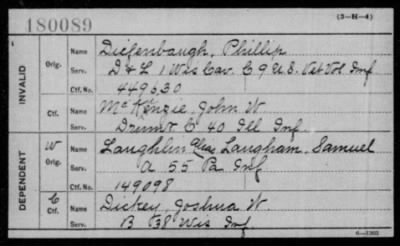 180089
(3-H-4)
INVALID
Orig. Name Diefenbaugh, Phillip
Serv. D & L 1 Wis Cav. C 9 U.S. Vet Vol Inf
Ctf. No. 449630
Ctf. Name McKenzie, John W
Serv. Drumr C. 40 Ill Inf.
DEPENDENT
W Orig. Name Laughlin Alias Laugham, Samuel
Serv. A 55 Pa Inf
Ctf. No. 149098
C Ctf. Name Dickey, Joshua W.
Serv. B 38 Wis Inf.